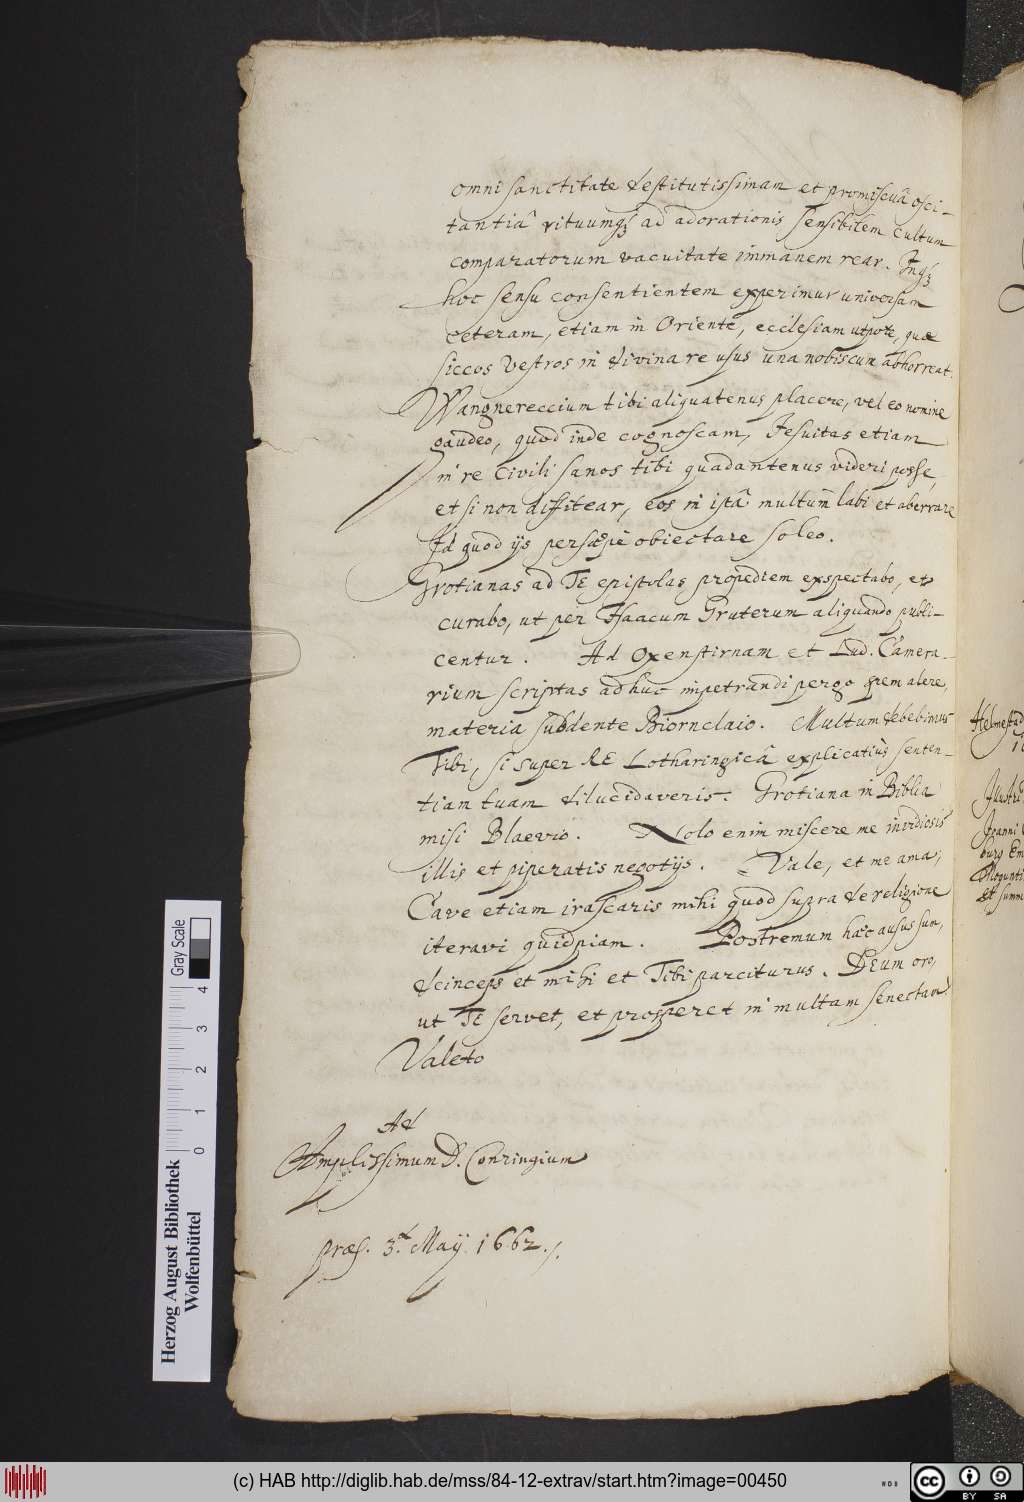 omni sanctitate destitutissimam et promiscuâ osci-
tantiâ rituumq; ad adorationis sensibilem cultum
comparatorum vacuitate immanem rear. Inq;
hoc sensu consentientem experimur universam
veteram, etiam in Oriente, ecclesiam utpote, quæ
siccos Vestros in divina re usus una nobiscum abhorreat.
Wangnereccium tibi aliquatenus placere, vel eo nomine
gaudeo, quod inde cognoscam, Jesuitas etiam
in re Civili sanos tibi quadantenus videri posse,
et si non diffitear, eos in istâ multum labi et aberrare
Id quod ijs persæpe obiectare soleo.
Grotianas ad TE epistolas propediem exspectabo, et
curabo, ut per Isaacum Gruterum aliquando publi-
centur. Ad Oxenstirnam et Lud. Camera-
rium scriptas adhuc impetrandi pergo spem alere,
materia subdente Biornclaio. Multum debebimus
Tibi, si super RE Lotharingicâ explicatiùs senten-
tiam tuam dilucidaveris. Grotiana in Biblia
misi Blaevio. Nolo enim miscere me invidiosis
illis et piperatis negotijs. Vale, et me ama,
Cave etiam irascaris mihi quod supra de religione
iteravi quidpiam. Postremum hæc ausus sum,
deinceps et mihi et Tibi parciturus. DEum oro,
ut TE servet, et prosperet in multam senectam.
Valeto
Ad
Amplissimum D. Conringium
præs. 3. d. Maÿ. 1662.
Helmestad
Illustri
Joanni
burg
Mogunti
et summ
Herzog August Bibliothek
Wolfenbüttel
0 1 2 3 4
Gray Scale
(c) HAB http://diglib.hab.de/mss/84-12-extrav/start.htm?image=00450
WDB
cc BY SA